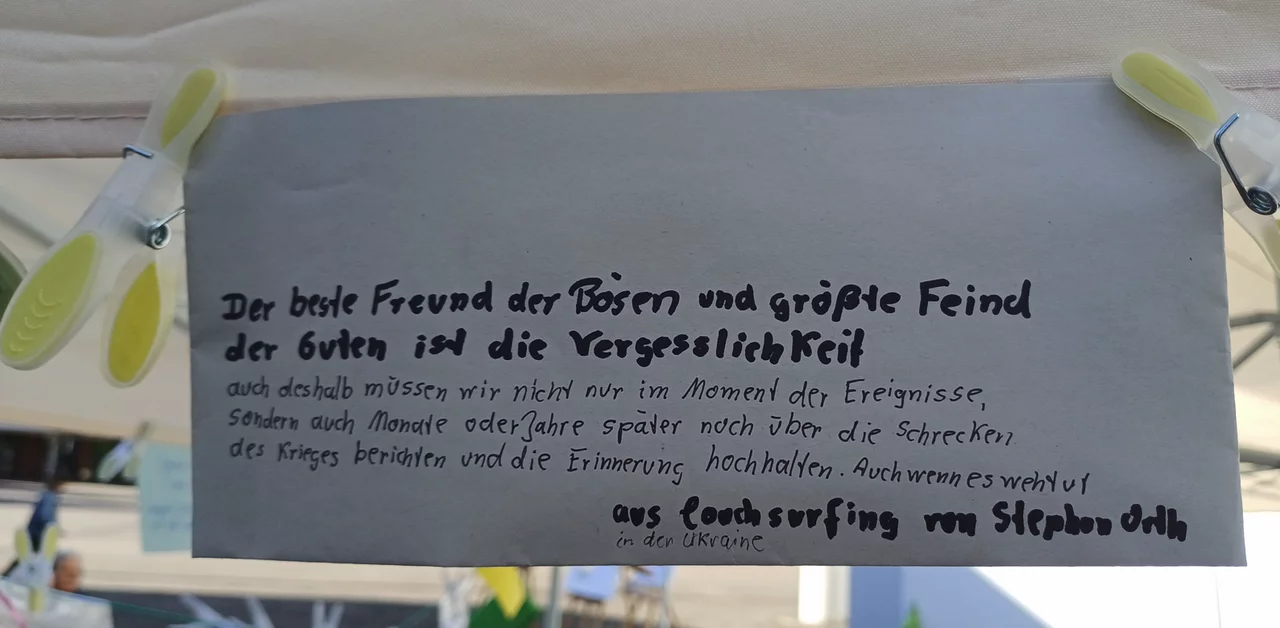 Der beste Freund der Bösen und größte Feind
der Guten ist die Vergesslichkeit
auch deshalb müssen wir nicht nur im Moment der Ereignisse,
sondern auch Monate oder Jahre später noch über die Schrecken
des Krieges berichten und die Erinnerung hochhalten. Auch wenn es weh tut
aus Couchsurfing von Stephan Orth
in der Ukraine